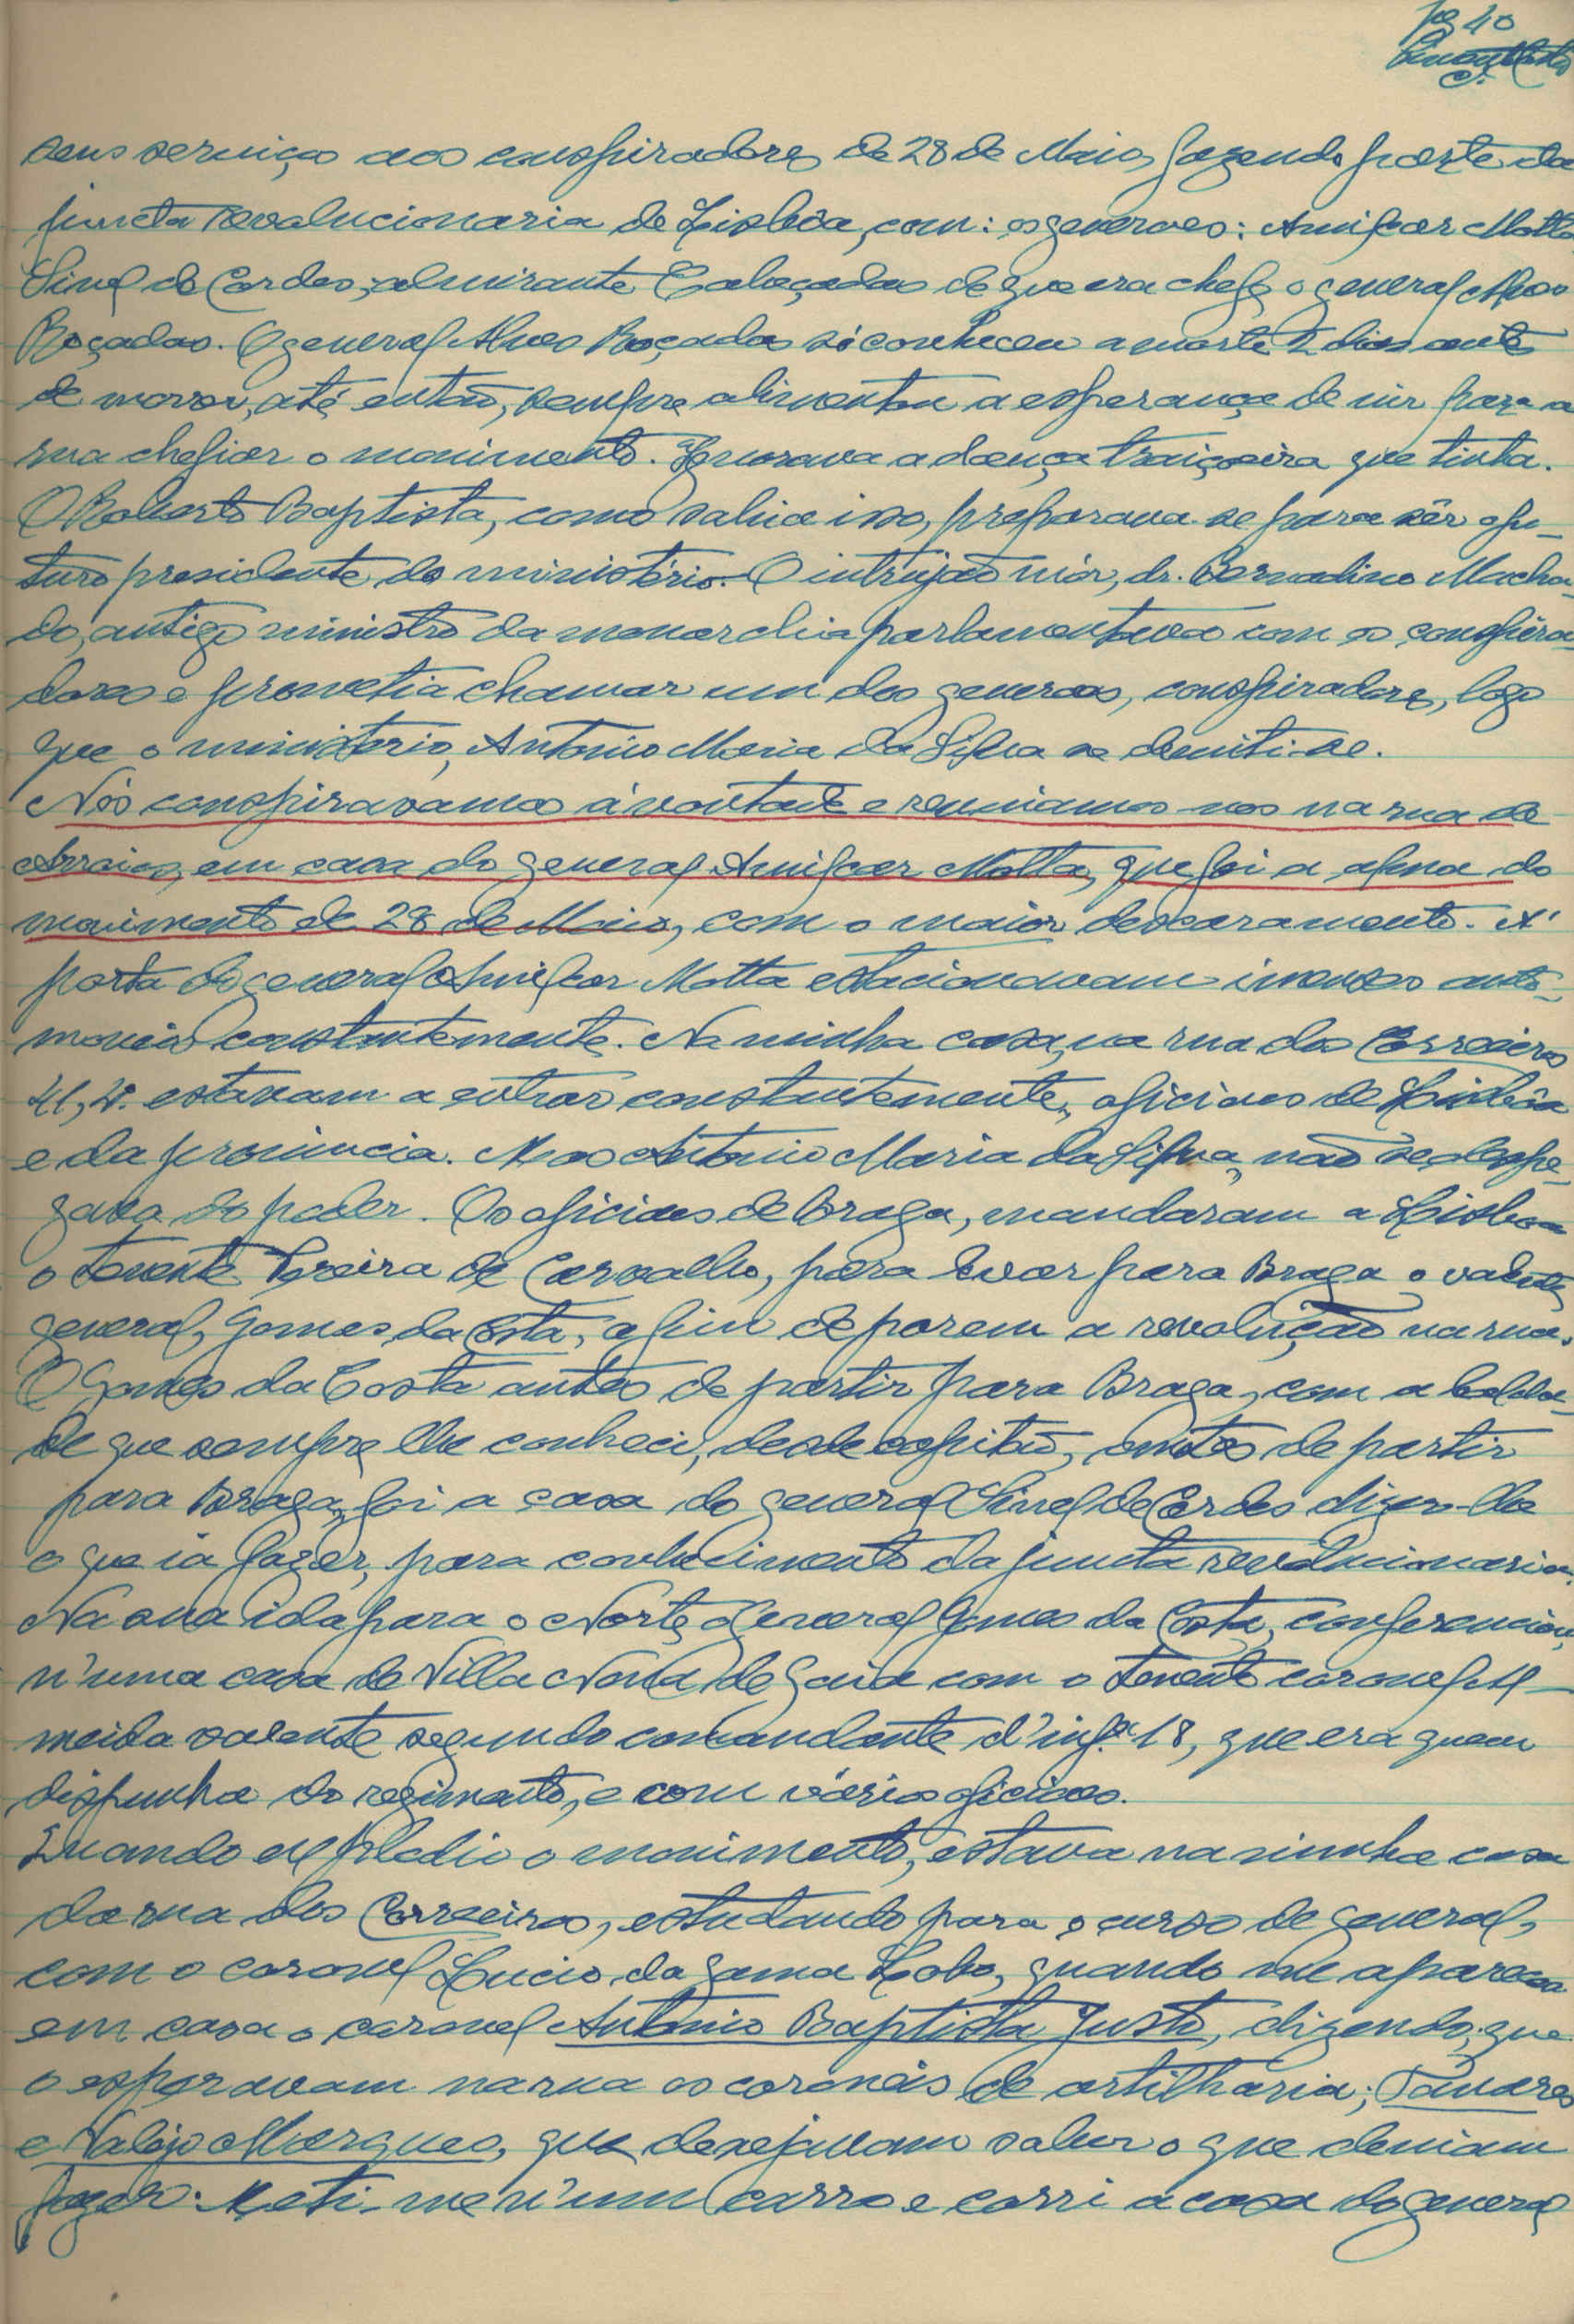 40
seus serviços aos conspiradores de 28 de Maio, fazendo parte da
juncta revolucionaria de Lisbôa, com: os generaes: Amilcar Motta
Sinel de Cordes, almirante Cabeçadas de que era chefe o general Alves
Roçadas. O general Alves Roçadas só conheceu a morte 2 dias antes
de morrer, até então, sempre alimentou a esperança de vir para a
rua chefiar o movimento. Ignorava a doença traiçoeira que tinha.
O Roberto Baptista, como sabia isso, preparava-se para sêr o fu-
turo presidente do ministério. O intrujão mór, dr. Bernadino Macha-
do, antigo ministro da monarchia parlamentava com os conspira-
dores e prometia chamar um dos generaes, conspiradores, logo
que o ministerio, Antonio Maria da Silva se demiti-se.
Nós conspiravamos á vontade e reuniamos nos na rua de
Arroios, em casa do general Amilcar Motta, que foi a alma do
movimento de 28 de Maio, com o maior descaramento. A'
porta do general Amilcar Motta estacionavam imensos auto-
moveis constantemente. Na minha casa, na rua dos Correeiros
41, 4º. estavam a entrar constantemente, oficiaes de Lisbôa
e da provincia. Mas Antonio Maria da Silva, não se despe-
gava do poder. Os oficiaes de Braga, mandaram a Lisboa
o tenente Pereira de Carvalho, para levar para Braga o valente
general, Gomes da Costa, a fim de porem a revolução na rua.
O Gomes da Costa antes de partir para Braga, com a lealda-
de que sempre lhe conheci, desde capitão, antes de partir
para Braga, foi a casa do general Sinel de Cordes dizer-lhe
o que ia fazer, para conhecimento da juncta revolucionaria.
Na sua ida para o Norte, o General Gomes da Costa, conferenciou,
n'uma casa de Villa Nova de Gaia com o tenente coronel Al-
meida valente segundo comandante d'infª. 18, que era quem
dispunha do regimento, e com vários oficiaes.
Quando explodio o movimento, estava na minha casa
da rua dos Correeiros, estudando para o curso de general,
com o coronel Lucio da Gama Lobo, quando me apareceu
em casa o coronel Antonio Baptista Justo, dizendo, que
o esperavam na rua os coroneis de artilharia; Tavares
e Valejo Marques, que desejavam saber o que deviam
fazer. Meti-me n'um carro e corri a casa do general